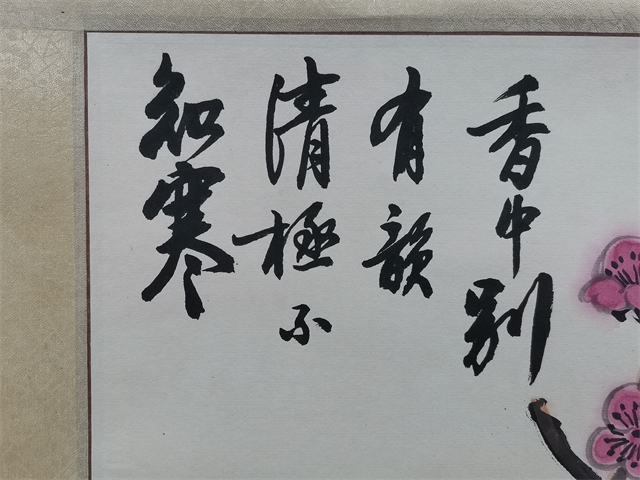 香中别
有韵
清极不
知寒